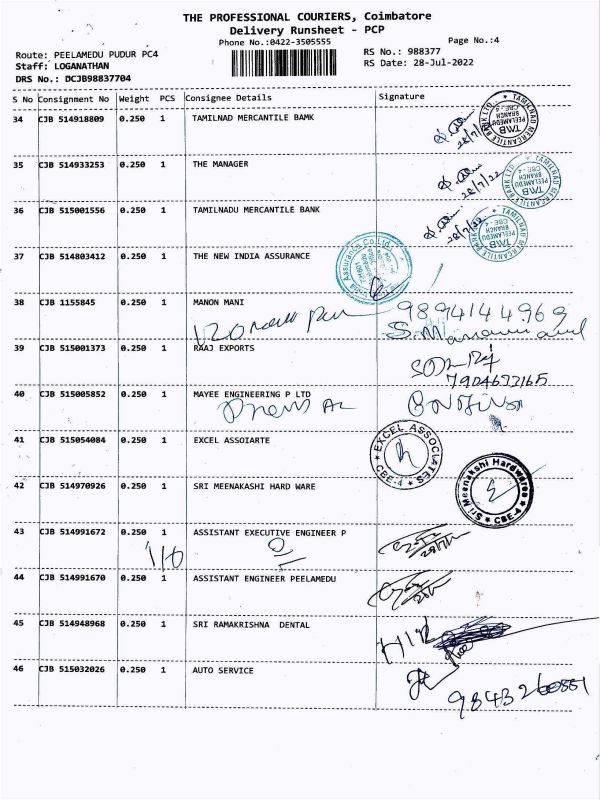 THE PROFESSIONAL COURIERS, Coimbatore
Delivery Runsheet - PCP
Phone No.:0422-3505555
Page No.:4
Route: PEELAMEDU PUDUR PC4
RS No.: 988377
Staff: LOGANATHAN
RS Date: 28-Jul-2022
DRS No.: DCJB98837704
S No Consignment No Weight PCS Consignee Details Signature
34 CJB 514918809 0.250 1 TAMILNAD MERCANTILE BAMK
28/7/22
TAMILNAD MERCANTILE BANK LTD. TMB PEELAMEDU BRANCH CBE-4
35 CJB 514933253 0.250 1 THE MANAGER
28/7/22
TAMILNAD MERCANTILE BANK LTD. TMB PEELAMEDU BRANCH CBE-4
36 CJB 515001556 0.250 1 TAMILNADU MERCANTILE BANK
28/7/22
TAMILNAD MERCANTILE BANK TMB PEELAMEDU BRANCH CBE-4
37 CJB 514803412 0.250 1 THE NEW INDIA ASSURANCE
India Assurance Co. Ltd.
38 CJB 1155845 0.250 1 MANON MANI
9894144969
39 CJB 515001373 0.250 1 RAAJ EXPORTS
7904632165
40 CJB 515005852 0.250 1 MAYEE ENGINEERING P LTD
41 CJB 515054084 0.250 1 EXCEL ASSOIARTE
EXCEL ASSOCIATES CBE-4
42 CJB 514970926 0.250 1 SRI MEENAKASHI HARD WARE
Sri Meenakshi Hardwares CBE-4
43 CJB 514991672 0.250 1 ASSISTANT EXECUTIVE ENGINEER P
44 CJB 514991670 0.250 1 ASSISTANT ENGINEER PEELAMEDU
45 CJB 514948968 0.250 1 SRI RAMAKRISHNA DENTAL
46 CJB 515032026 0.250 1 AUTO SERVICE